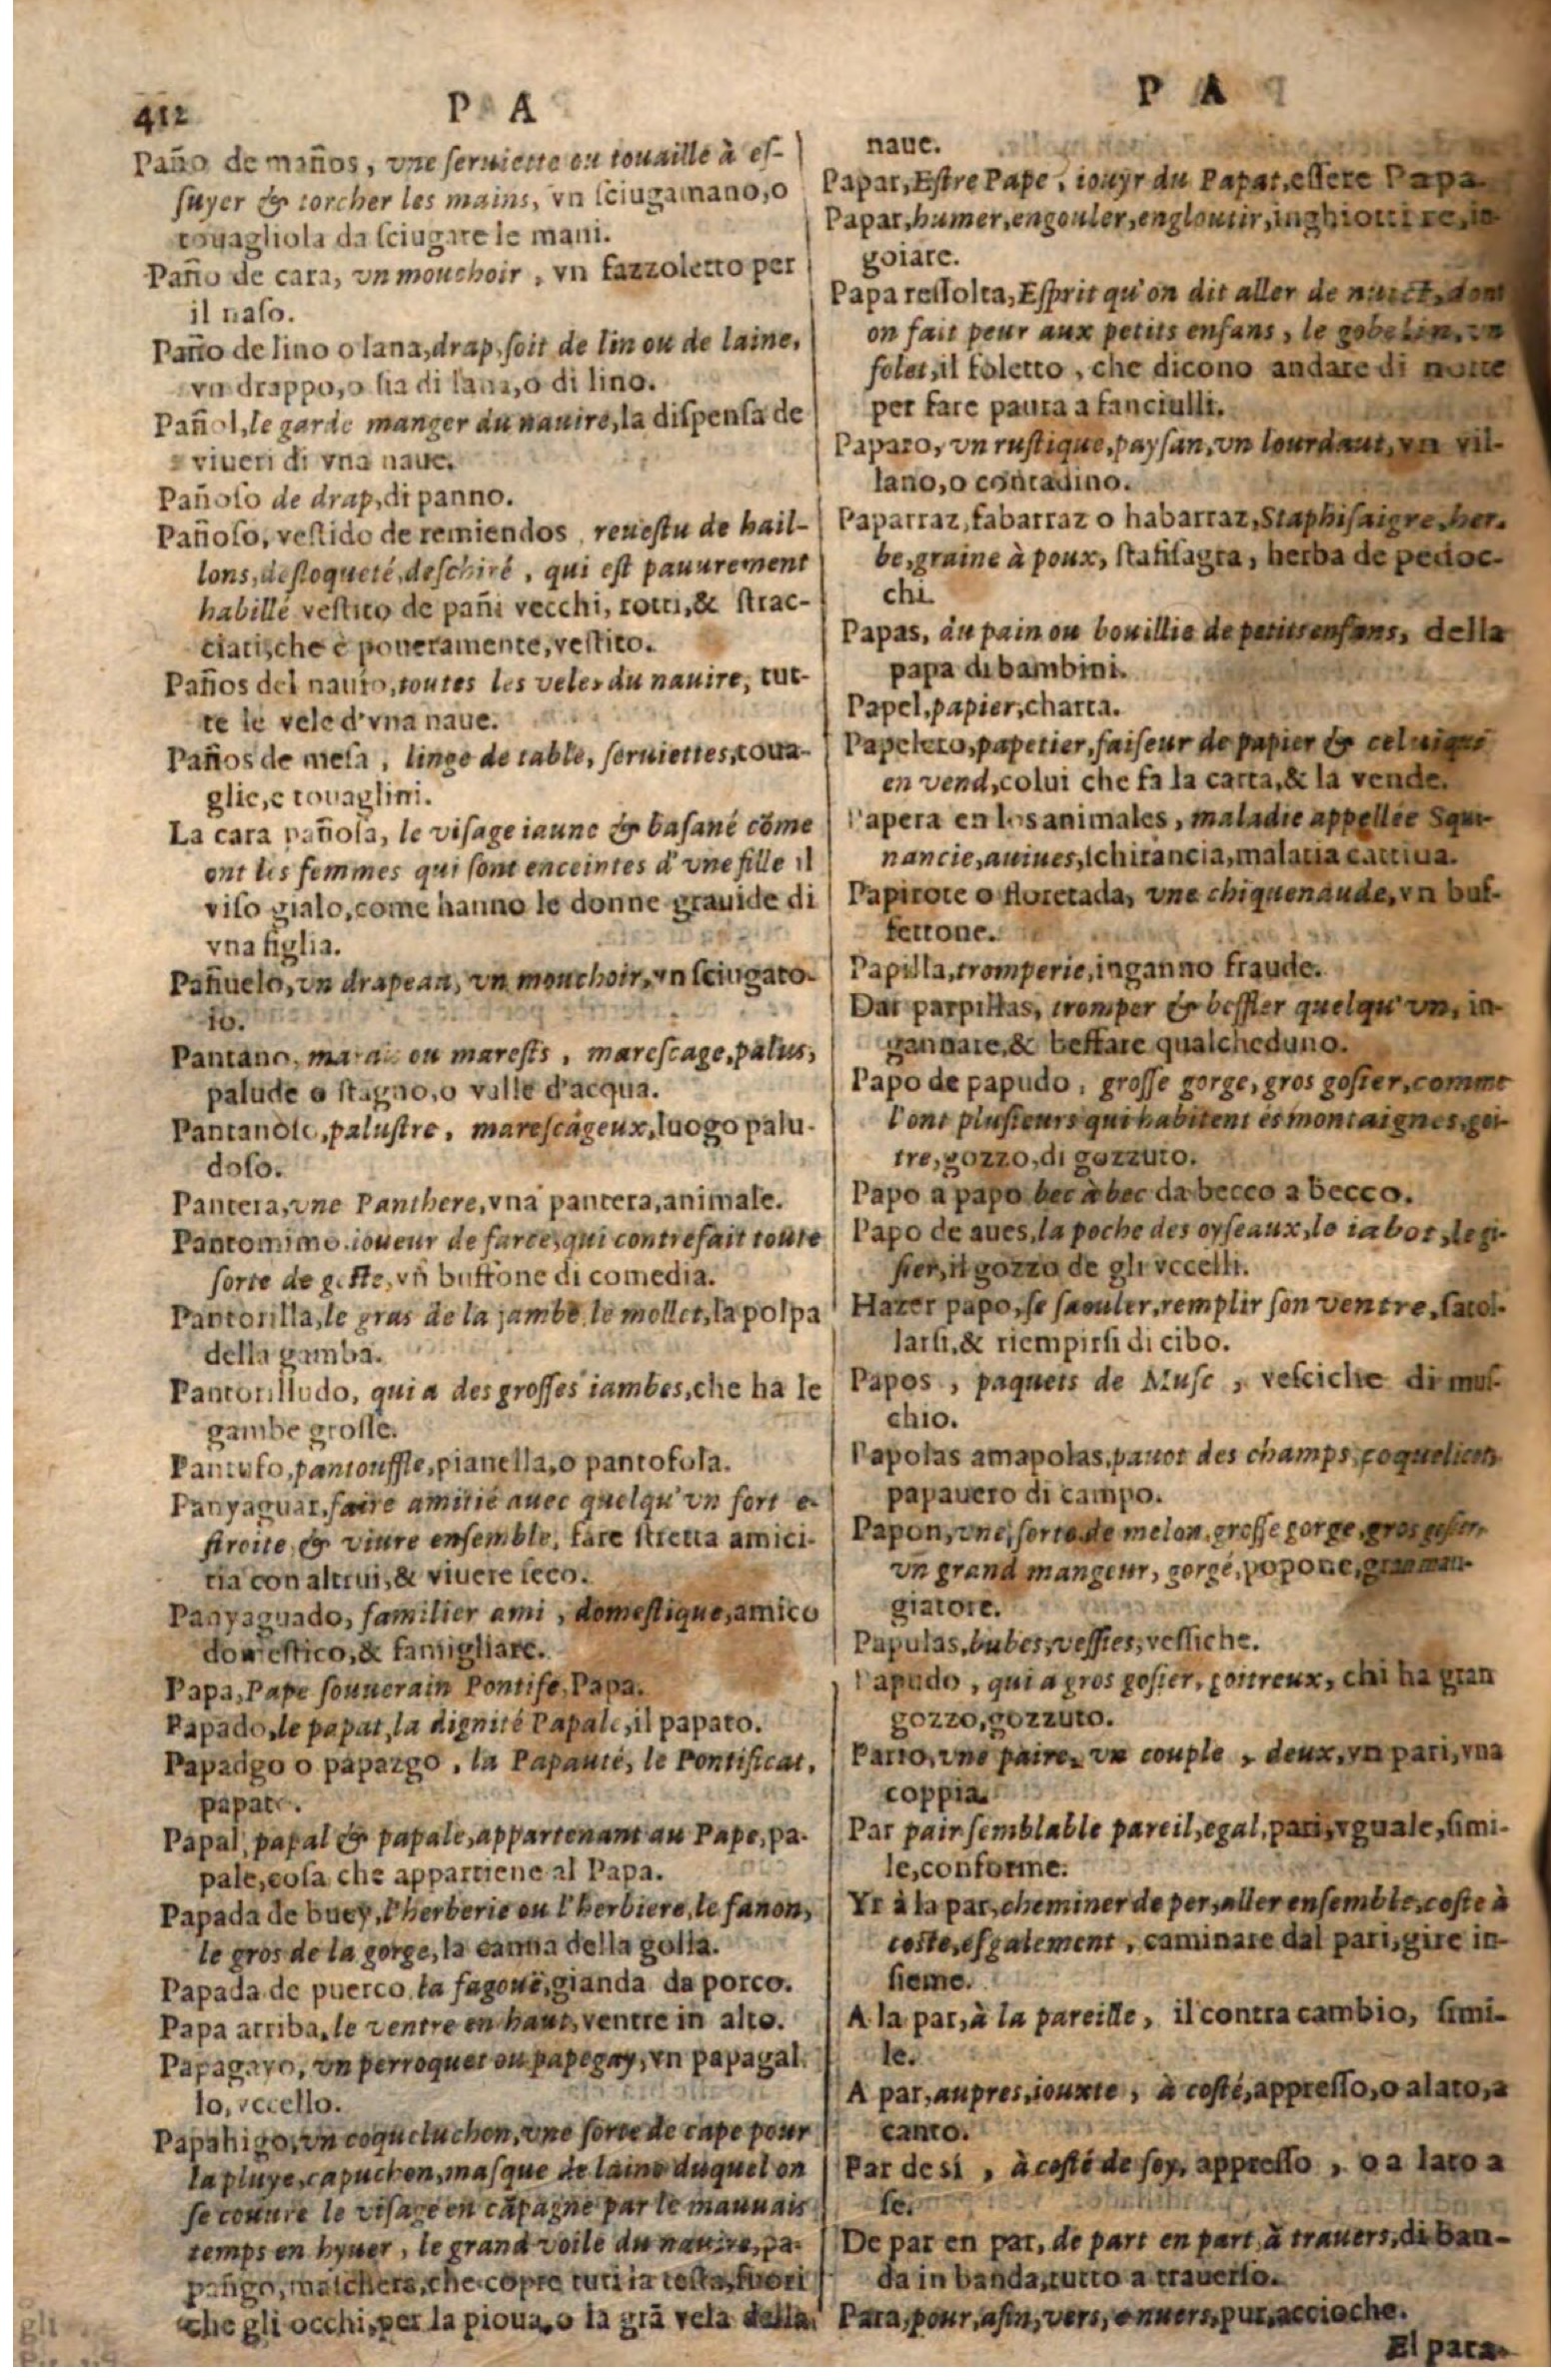 412
P A
Paño de maños, vne seruiette ou touaille à es-
suyer & torcher les mains, vn sciugamano,o
touagliola da sciugare le mani.
Paño de cara, vn mouchoir, vn fazzoletto per
il naso.
Paño de lino o lana,drap,soit de lin ou de laine,
vn drappo,o sia di lana,o di lino.
Pañol,le garde manger du nauire,la dispensa de
viueri di vna naue.
Pañoso de drap,di panno.
Pañoso, vestido de remiendos, reuestu de hail-
lons,desloqueté,deschiré, qui est pauurement
habillé vestito de pañi vecchi, rotti,& strac-
ciati,che è poueramente,vestito.
Paños del nauio,toutes les veles du nauire, tut-
te le vele d'vna naue.
Paños de mesa, linge de table, seruiettes,toua-
glie,e touaglini.
La cara pañosa, le visage iaune & basané cõme
ont les femmes qui sont enceintes d'vne fille il
viso gialo,come hanno le donne grauide di
vna figlia.
Pañuelo,vn drapeau, vn mouchoir,vn sciugato-
io.
Pantano, marais ou marests, marescage,palus,
palude o stagno,o valle d'acqua.
Pantanoso,palustre, marescageux,luogo palu-
doso.
Pantera,vne Panthere,vna pantera,animale.
Pantomimo.ioueur de farce,qui contrefait toute
sorte de geste,vn buffone di comedia.
Pantorilla,le gras de la jambe,le mollet,la polpa
della gamba.
Pantorilludo, qui a des grosses iambes,che ha le
gambe grosse.
Pantufo,pantouffle,pianella,o pantofola.
Panyaguar,faire amitié auec quelqu'vn fort e-
stroite & viure ensemble, fare stretta amici-
tia con altrui,& viuere seco.
Panyaguado, familier ami, domestique,amico
domestico,& famigliare.
Papa,Pape souuerain Pontife,Papa.
Papado,le papat,la dignité Papale,il papato.
Papadgo o papazgo, la Papauté, le Pontificat,
papato.
Papal, papal & papale,appartenant au Pape,pa-
pale,cosa che appartiene al Papa.
Papada de buey,l'herberie ou l'herbiere,le fanon,
le gros de la gorge,la canna della golla.
Papada de puerco,la fagouë,gianda da porco.
Papa arriba,le ventre en haut,ventre in alto.
Papagayo, vn perroquet ou papegay,vn papagal-
lo,vccello.
Papahigo,vn coqueluchon,vne sorte de cape pour
la pluye,capuchon,masque de laine duquel on
se couure le visage en cãpagne par le mauuais
temps en hyuer, le grand voile du nauire,pa-
pafigo,maschera,che copre tuti la testa,fuori
che gli occhi,per la pioua,o la grã vela della
P A
naue.
Papar,Estre Pape, iouyr du Papat,essere Papa.
Papar,humer,engouler,engloutir,inghiottire,in-
goiare.
Papa ressolta,Esprit qu'on dit aller de nuict,dont
on fait peur aux petits enfans, le gobelin,vn
folet,il foletto, che dicono andare di notte
per fare paura a fanciulli.
Paparo, vn rustique,paysan,vn lourdaut,vn vil-
lano,o contadino.
Paparraz,fabarraz o habarraz,Staphisaigre,her-
be,graine à poux, stafisagra, herba de pedoc-
chi.
Papas, du pain ou bouillie de petits enfans, della
papa di bambini.
Papel,papier,charta.
Papelero,papetier,faiseur de papier & celuiqui
en vend,colui che fa la carta,& la vende.
Papera en los animales, maladie appellée Squi-
nancie,auiues,schirancia,malatia cattiua.
Papirote o floretada, vne chiquenaude,vn buf-
fettone.
Papilla,tromperie,inganno fraude.
Dar parpillas, tromper & beffler quelqu'vn, in-
gannare,& beffare qualcheduno.
Papo de papudo, grosse gorge,gros gosier,comme
l'ont plusieurs qui habitent és montaignes,goi-
tre,gozzo,di gozzuto.
Papo a papo bec à bec da becco a becco.
Papo de aues,la poche des oyseaux,le iabot,le gi-
sier,il gozzo de gli vccelli.
Hazer papo,se saouler,remplir son ventre,satol-
larsi,& riempirsi di cibo.
Papos, paquets de Musc, vesciche di mus-
chio.
Papolas amapolas,pauot des champs,coquelicot,
papauero di campo.
Papon,vne sorte de melon,grosse gorge,gros gosier,
vn grand mangeur, gorgé,popone,gran man-
giatore.
Papulas,bubes,vessies,vessiche.
Papudo, qui a gros gosier, goitreux, chi ha gran
gozzo,gozzuto.
Parro,vne paire, vn couple, deux,vn pari,vna
coppia.
Par pair semblable pareil,egal,pari,vguale,simi-
le,conforme.
Yr à la par,cheminer de per,aller ensemble,coste à
coste,esgalement, caminare dal pari,gire in-
sieme.
A la par,à la pareille, il contra cambio, simi-
le.
A par,aupres,iouxte, à costé,appresso,o a lato,a
canto.
Par de si, à costé de soy, appresso, o a lato a
se.
De par en par, de part en part,à trauers,di ban-
da in banda,tutto a trauerso.
Para,pour,afin,vers,enuers,pur,accioche.
El para-